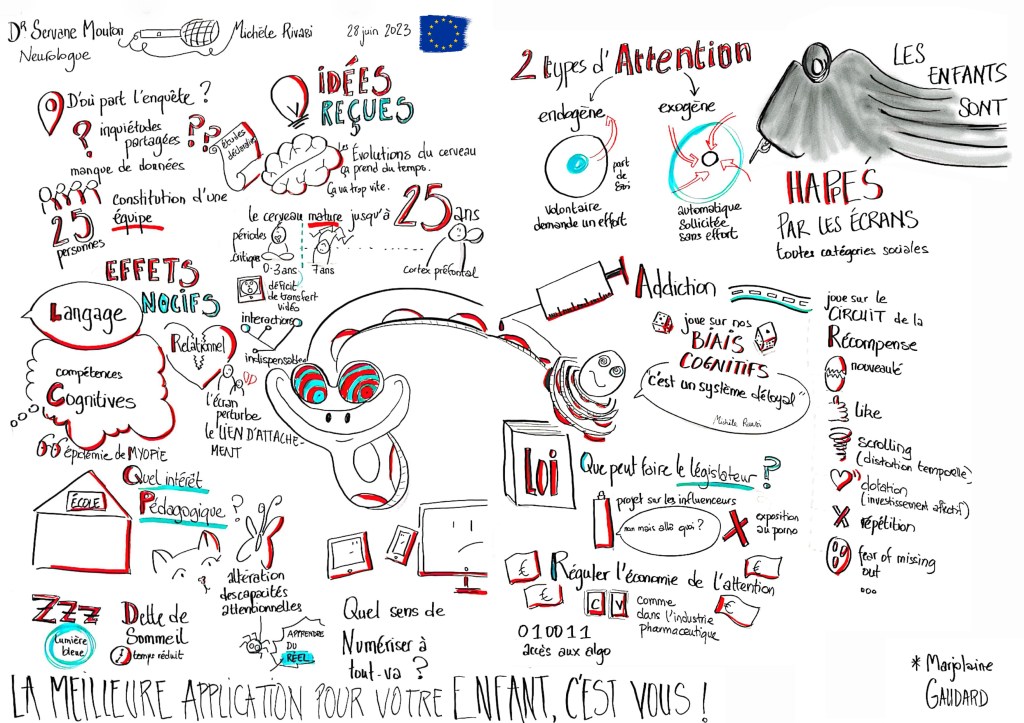 Dr Servane Mouton
Neurologue
Michèle Rivasi
28 juin 2023
D'où part l'enquête ?
inquiétudes
partagées
manque de données
études
déclarées
25
personnes
Constitution d'une
équipe
IDÉES
REÇUES
Les Évolutions du cerveau
ça prend du temps.
Ça va trop vite.
le cerveau mature jusqu'à 25 ans
périodes
critiques
0-3 ans
7 ans
Cortex préfontal
déficit
de transfert
vidéo
interactions
indispensables
EFFETS
NOCIFS
Langage
compétences
Cognitives
Relationnel
l'écran
perturbe
le LIEN D'ATTACHE-
MENT
épidémie de MYOPIE
ÉCOLE
Quel intérêt
Pédagogique ?
altération
des capacités
attentionnelles
APPRENDRE
DU
RÉEL
Zzz
lumière
bleue
Dette de
Sommeil
temps réduit
Quel sens de
Numériser à
tout-va ?
2 types d'Attention
endogène
part
de
Volontaire
demande un effort
exogène
automatique
Sollicitée
sans effort
LES
ENFANTS
SONT
HAPPÉS
PAR LES ÉCRANS
toutes catégories sociales
Addiction
joue sur nos
BIAIS
COGNITIFS
"c'est un système déloyal"
Michèle Rivasi
joue sur le
CIRCUIT de la
Récompense
nouveauté
like
scrolling
(distortion temporelle)
dotation
(investissement affectif)
répétition
fear of missing
out
...
LOI
Que peut faire le législateur ?
projet sur les influenceurs
non mais allô quoi ?
exposition
au porno
Réguler l'économie de l'attention
€
€
€
€
C V
Comme
dans l'industrie
pharmaceutique
010011
accès aux algo
LA MEILLEURE APPLICATION POUR VOTRE ENFANT, C'EST VOUS !
* Marjolaine
GAUDARD